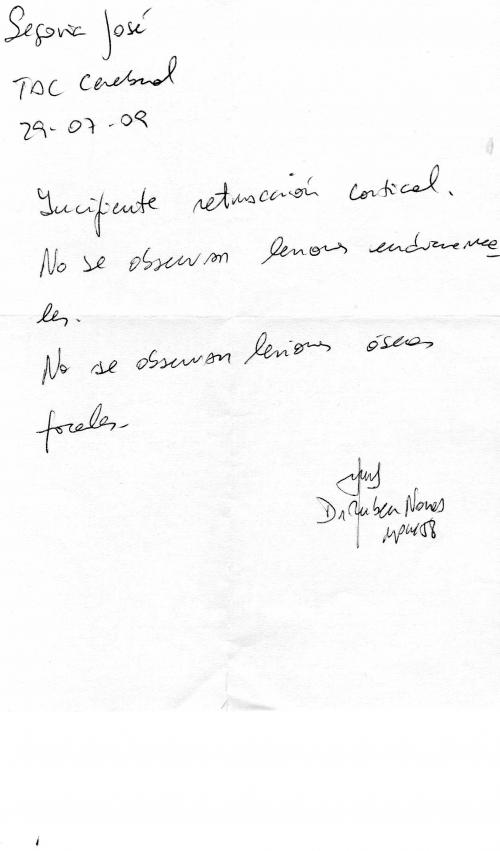 Segovia José
TAC Cerebral
29-07-09
Incipiente retracción cortical.
No se observan lesiones endocranea
les.
No se observan lesiones óseas
focales.
Dr Ruben